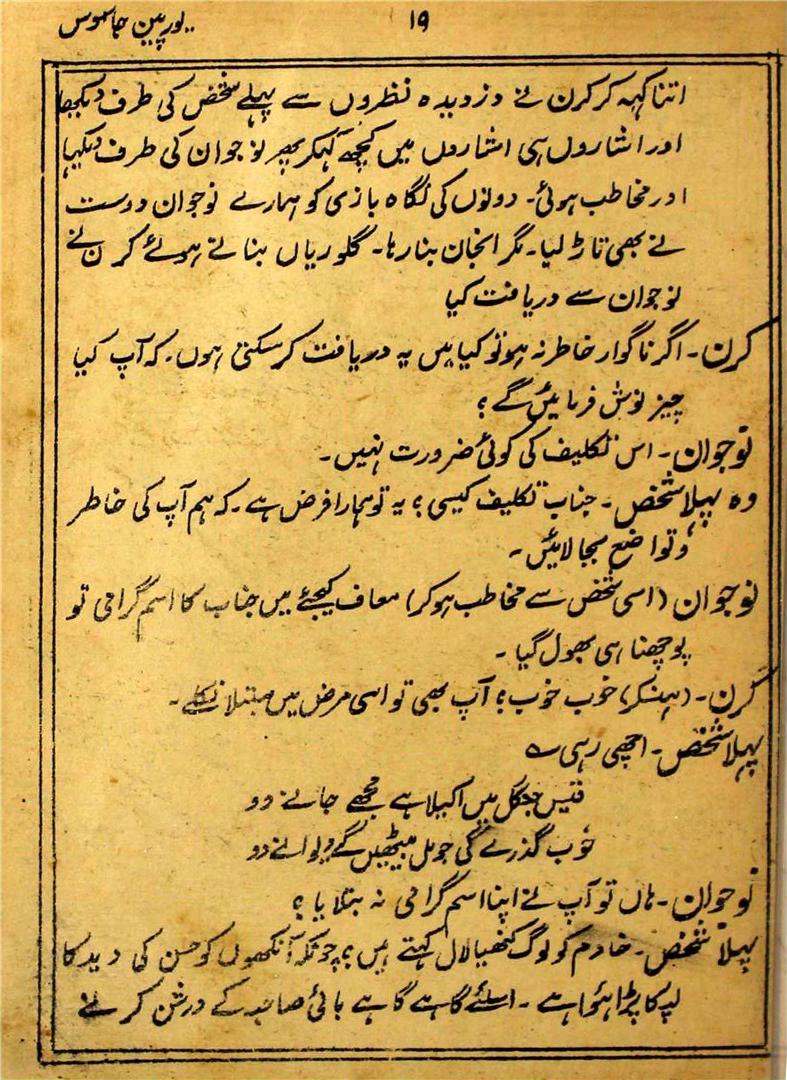 ۱۹
یورپین جاسوس
اتنا کہہ کر کرن نے دزدیدہ نظروں سے پہلے شخص کی طرف دیکھا
اور اشاروں ہی اشاروں میں کچھ کہکر پھر نوجوان کی طرف دیکھا
اور مخاطب ہوئی۔ دونوں کی نگاہ بازی کو ہمارے نوجوان دوست
نے بھی تاڑ لیا۔ مگر انجان بنا رہا۔ گلوریاں بناتے ہوئے کرن نے
نوجوان سے دریافت کیا
کرن۔ اگر ناگوار خاطر نہ ہو تو کیا میں یہ دریافت کر سکتی ہوں۔ کہ آپ کیا
چیز نوش فرمائیں گے؟
نوجوان۔ اس تکلیف کی کوئی ضرورت نہیں۔
وہ پہلا شخص۔ جناب تکلیف کیسی؟ یہ تو ہمارا فرض ہے۔ کہ ہم آپ کی خاطر
و تواضع بجا لائیں۔
نوجوان (اسی شخص سے مخاطب ہوکر) معاف کیجئے میں جناب کا اسم گرامی تو
پوچھنا ہی بھول گیا۔
کرن۔ (ہنسکر) خوب خوب؛ آپ بھی تو اسی مرض میں مبتلا نکلے۔
پہلا شخص۔ اچھی رہی ؎
قیس جنگل میں اکیلا ہے مجھے جانے دو
خوب گذرے گی جو مل بیٹھیں گے دیوانے دو
نوجوان۔ ہاں تو آپ نے اپنا اسم گرامی نہ بتلایا؟
پہلا شخص۔ خادم کو لوگ کنھیا لال کہتے ہیں؛ چونکہ آنکھوں کو حسن کی دید کا
لپکا پڑا ہؤا ہے۔ اسلئے گاہے گاہے بائی صاحبہ کے درشن کرنے